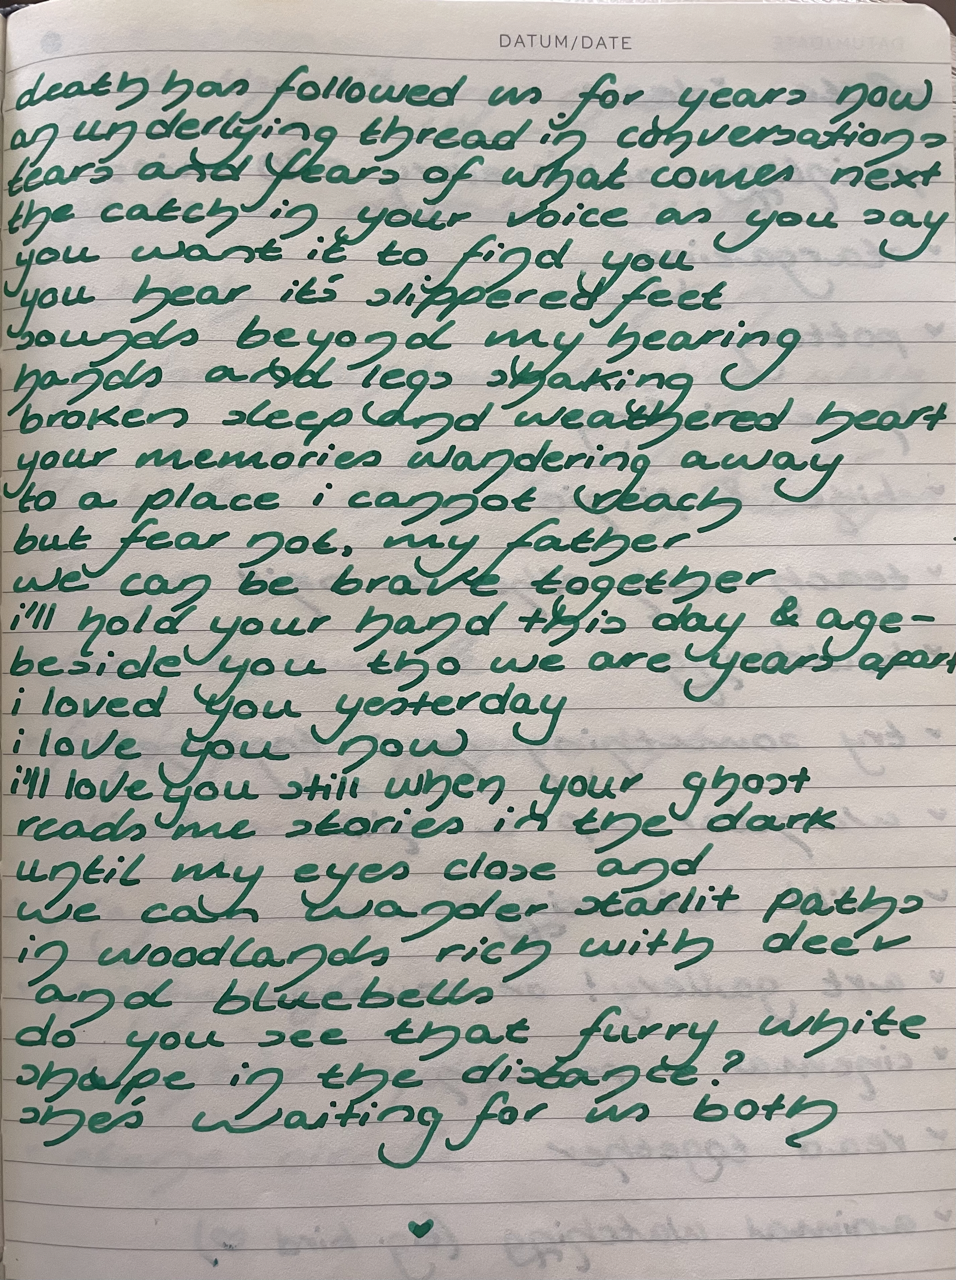 DATUM/DATE
death has followed us for years now
an underlying thread in conversations
tears and fears of what comes next
the catch in your voice as you say
you want it to find you
you hear it's slippered feet
sounds beyond my hearing
hands and legs shaking
broken sleep and weathered heart
your memories wandering away
to a place i cannot reach
but fear not, my father
we can be brave together
i'll hold your hand this day & age-
beside you tho we are years apart
i loved you yesterday
i love you now
i'll love you still when your ghost
reads me stories in the dark
until my eyes close and
we can wander starlit paths
in woodlands rich with deer
and bluebells
do you see that furry white
shape in the distance?
she's waiting for us both